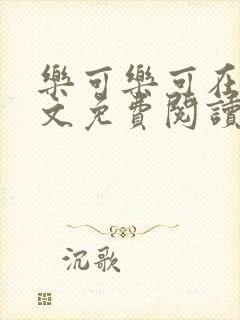 樂可樂可在
文免費閱讀
沉歌